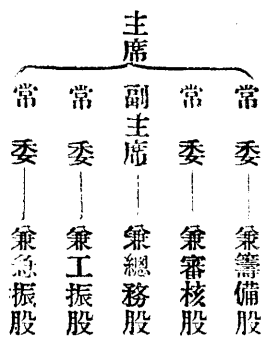 主席
常委——兼籌備股
常委——兼審核股
副主席——兼總務股
常委——兼工振股
常委——兼急振股